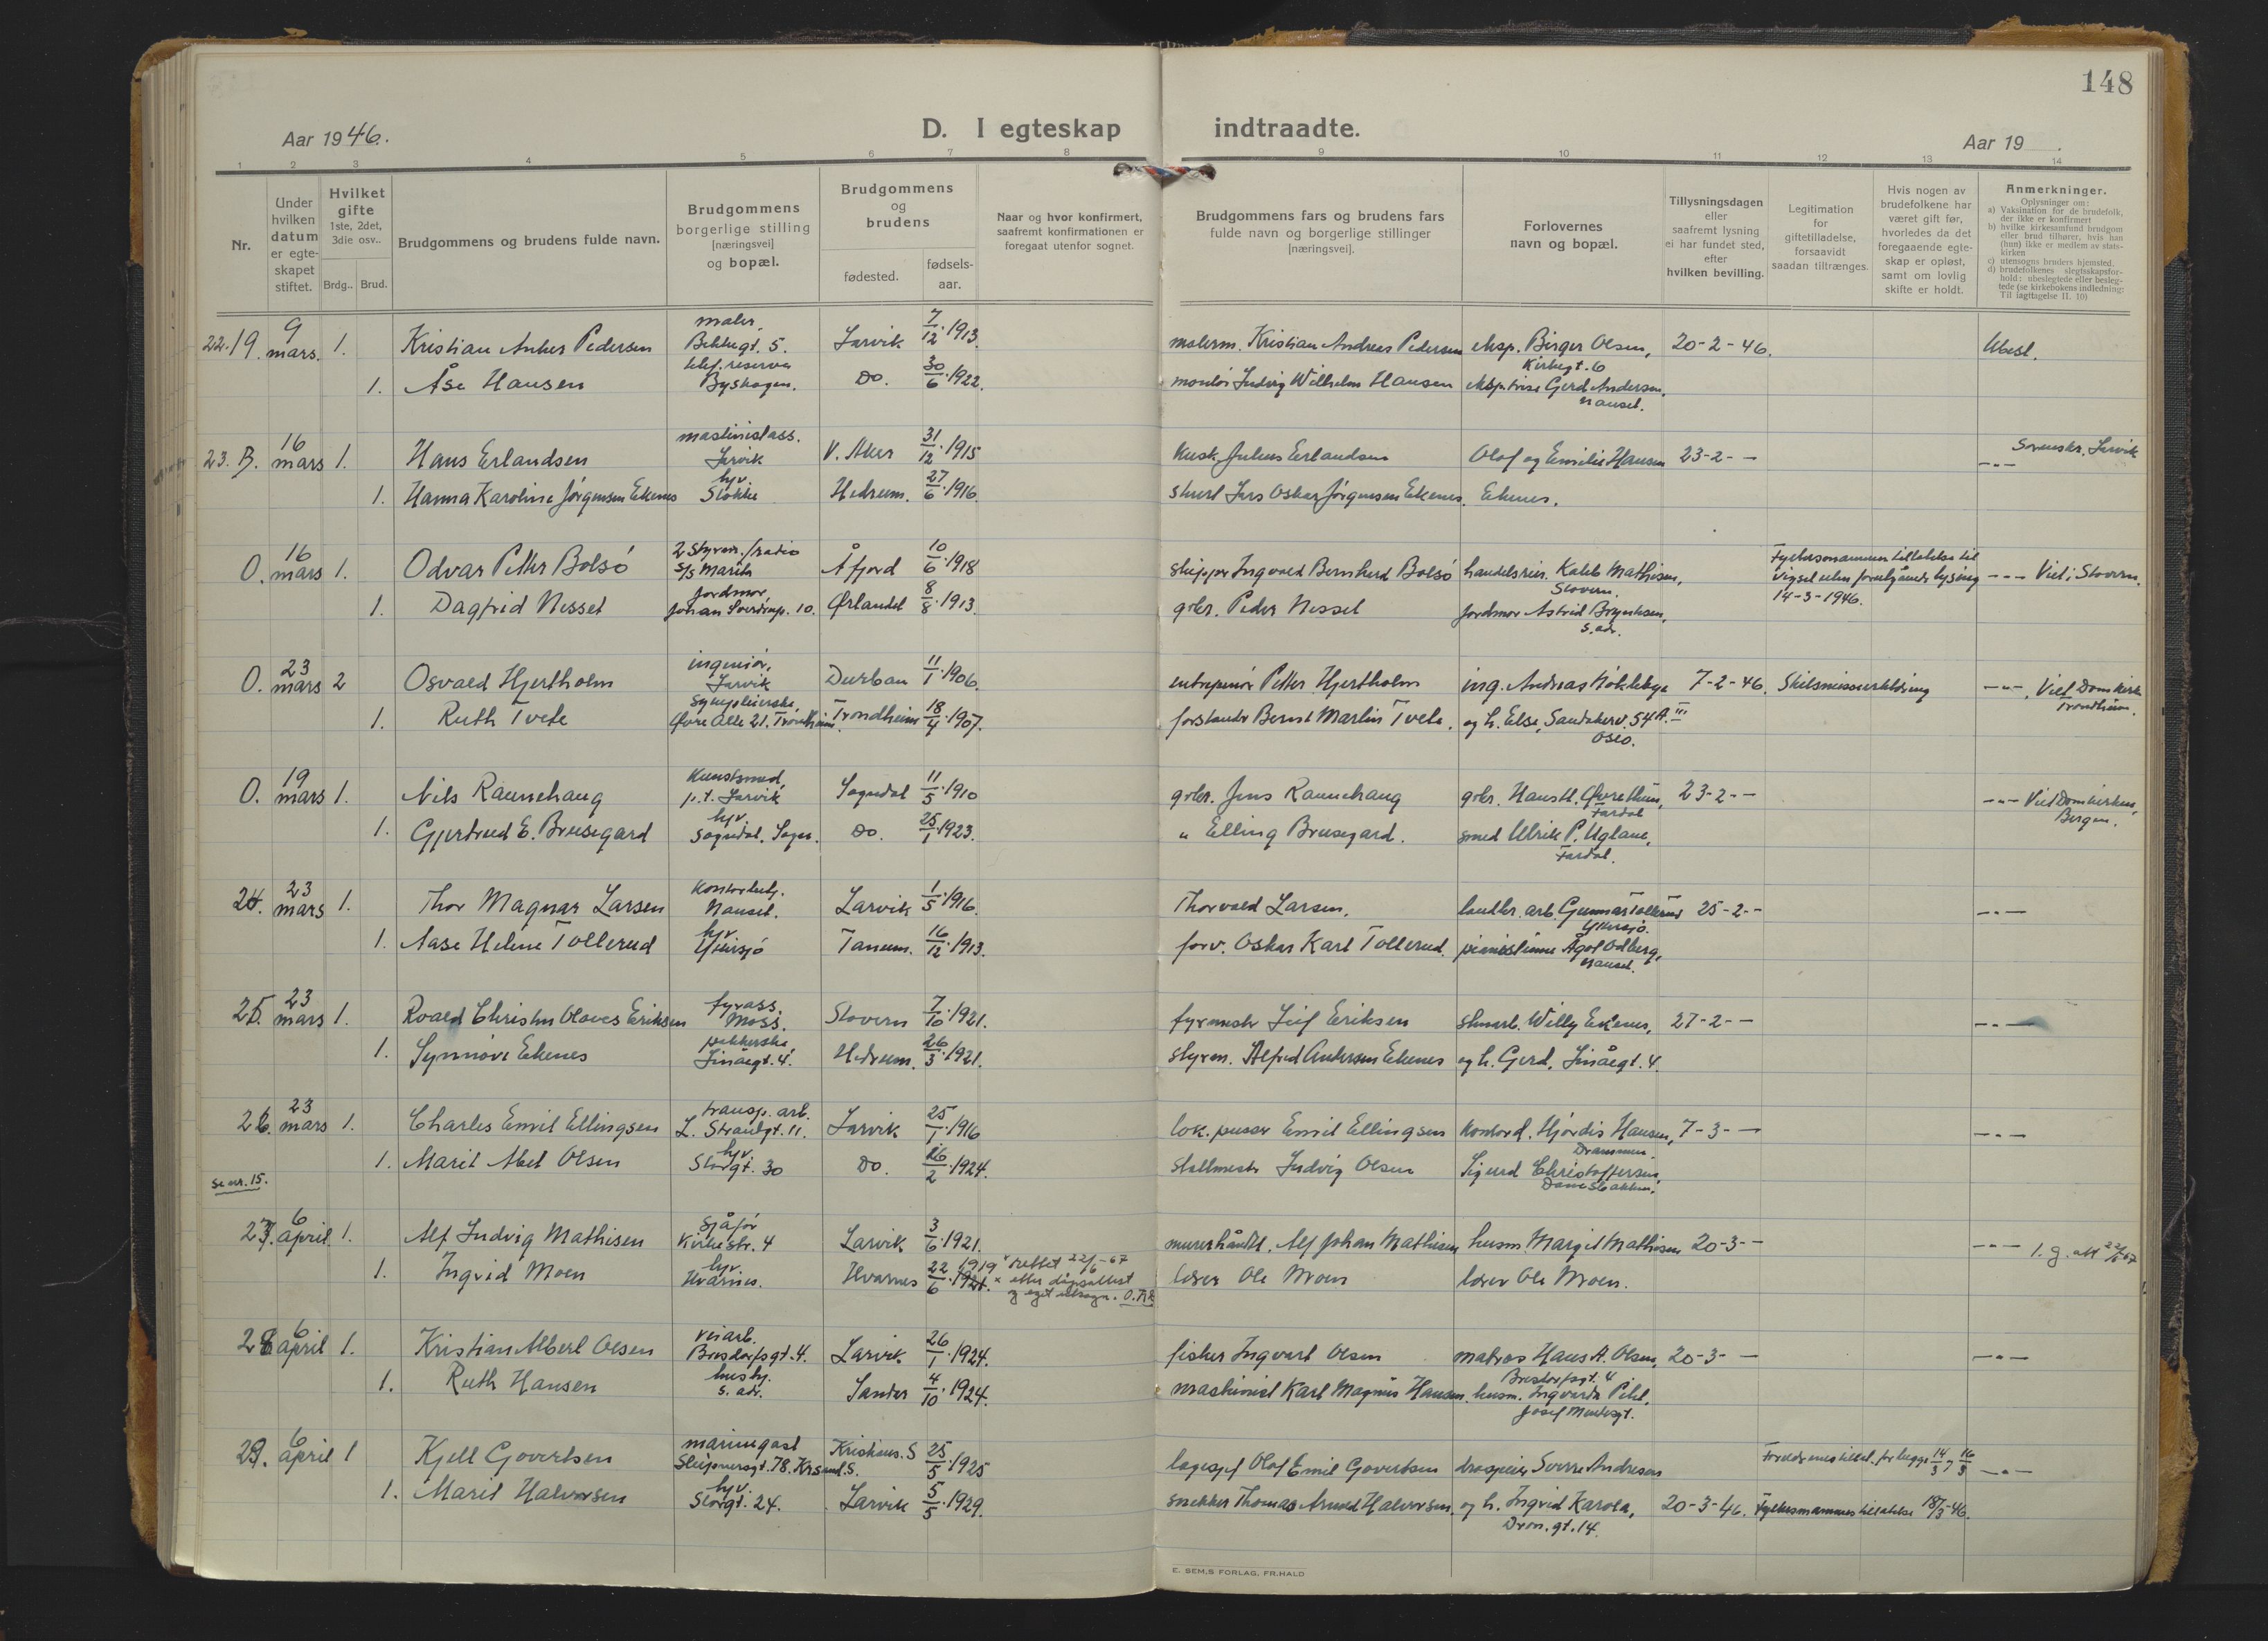 148
Aar 1946.
D. I egteskap indtraadte.
Aar 19 .
1 2 3 4 5 6 7 8 9 10 11 12 13 14
Nr.
Under
hvilken
datum
er egte-
skapet
stiftet.
Hvilket
gifte
1ste, 2det,
3die osv..
Brdg.. Brud.
Brudgommens og brudens fulde navn.
Brudgommens
borgerlige stilling
[næringsvei]
og bopæl.
Brudgommens
og
brudens
fødested.
fødsels-
aar.
Naar og hvor konfirmert,
saafremt konfirmationen er
foregaat utenfor sognet.
Brudgommens fars og brudens fars
fulde navn og borgerlige stillinger
[næringsvei].
Forlovernes
navn og bopæl.
Tillysningsdagen
eller
saafremt lysning
ei har fundet sted,
efter
hvilken bevilling.
Legitimation
for
giftetilladelse,
forsaavidt
saadan tiltrænges.
Hvis nogen av
brudefolkene har
været gift før,
hvorledes da det
foregaaende egte-
skap er opløst,
samt om lovlig
skifte er holdt.
Anmerkninger.
Oplysninger om:
a) Vaksination for de brudefolk,
der ikke er konfirmert
b) hvilke kirkesamfund brudgom
eller brud tilhører, hvis han
(hun) ikke er medlem av stats-
kirken
c) utensogns bruders hjemsted.
d) brudefolkenes slegtsskapsfor-
hold: ubeslegtede eller besleg-
tede (se kirkebokens indledning:
Til iagttagelse II. 10)
22. 19. 9 mars. 1. Kristian Anker Pedersen maler, Bekkegt. 5. Larvik 7/12.1913. malerm. Kristian Andreas Pedersen eksp. Birger Olsen, Kirkegt. 6 20-2-46. Ubesl.
1. Åse Hansen telef. reserve Byskogen. Do. 30/6.1922. montør Ludvig Wilhelm Hansen eksp.trise Gerd Andersen, Nanset.
23. B. 16 mars 1. Hans Erlandsen maskinistass. Larvik V. Aker 31/12.1915 kusk Julius Erlandsen Olaf og Emilie Hansen 23-2- - -"- Sorenskr. Larvik
1. Hanna Karoline Jørgensen Ekenes hjv. Stokke Hedrum. 27/6.1916. Lars Oskar Jørgensen Ekenes. Ekenes.
0. 16 mars 1. Odvar Petter Bolsö 2 styrm./radio S/S Åfjord 10/6.1918 skipper Ingvald Bernhard Bolsö Kaleb Mathisen, Stavern. Fylkesmannens tillatelse til vigsel uten foregående lysing 14-3-1946. -"- Viet i Stavern.
1. Dagfrid Nesset jordmor, Johan Sverdrupg. 10. Ørlandet 8/8.1913. gbr. Peder Nesset jordmor Astrid Bryntesen, s. adr.
0. 23 mars 2 Osvald Hjertholm ingeniör, Larvik Durban 11/1.1906. entreprenör Petter Hjertholm ing. Andreas Høklebye 7-2-46. Skilsmisseerklæring -"-. Viet Domkirk. Trondheim.
1. Ruth Tvete sykepleierske, Øvre Alle 21. Trondheim. Trondheim 18/4.1907. forstander Bernt Martin Tvete. og h. Else, Sandakerv. 54 A. III Oslo.
0. 19 mars 1. Nils Raunehaug Kunstsmed, p.t. Larvik Sogndal 11/5.1910 gbr. Jens Raunehaug gbr. Hans H. Øvrethun, Fardal 23-2-- -"- Viet Domkirken, Bergen.
1. Gjertrud E. Brusegard hjv. Sogndal. Sogn. Do. 25/1.1923. " Elling Brusegard. smed Ulrik P. Uglane, Fardal.
24. 23 mars 1. Thor Magnar Larsen Kontorbetj. Nanset. Larvik 1/5.1916. Thorvald Larsen. landbr. arb Gunnar Tollerud Ytersjö. 25-2-- -"-
1. Aase Helene Tollerud hjv. Ytersjö Tanum. 16/12.1913. forv. Oskar Karl Tollerud. pianistinne Ågot Odberg, Nanset.
25. 23 mars 1. Roald Christen Olaves Eriksen fyrass. Moss. Stavern 7/10.1921. fyrmestr Leif Eriksen Willy Ekenes, 27-2-- -"-
1. Synnöve Ekenes pakkerske, Linåegt. 4. Hedrum. 26/3.1921. styrm. Alfred Andersen Ekenes og h. Gerd, Linåegt. 4.
26. 23 mars 1. Charles Emil Ellingsen transp. arb. L. Strandgt. 11. Larvik 25/1.1916 lok. pusser Emil Ellingsen Kontord. Hjördis Hansen, Drammen. 7-3-- -"-
1. Marit Abel Olsen hjv. Storgt. 30 Do. 16/2.1924. stallmestr Ludvig Olsen Sigurd Christoffersen, Danebakken.
Se nr. 15.
27. 6 april 1. Alf Ludvig Mathisen sjåför Kirkestr. 4 Larvik 3/6.1921. murerhåndtl. Alf Johan Mathisen husm. Margit Mathisen 20-3- -"- l.g. att 22/6 67
1. Ingrid Moen hjv. Hvarnes. Hvarnes 22/6 1919 .1921. x rettet 22/6-67 x etter dåpsattest og eget utsagn. lærer Ole Moen lærer Ole Moen.
28 6 april 1. Kristian Albert Olsen veiarb. Bredorfsgt. 4. Larvik 26/1.1924. fisker Ingvart Olsen matros Hans A. Olsen, Bredorfsgt. 4 20-3- - -"-
1. Ruth Hansen husbj. s. adr. Sandar 4/10.1924. maskinist Karl Magnus Hansen. husm. Ingvarda Pihl,
29. 6 april 1 Kjell Govertsen marinegast Sleipnersgt. 78. Krsand. S. Kristians. S 25/5.1925 lagesjef Olaf Emil Govertsen Sverre Andresen Foreldrenes tillat. for begge 14/3, 16/3 -"-
1. Marit Halvorsen hjv. Storgt. 24. Larvik 5/5.1929. snekker Thomas Arnold Halvorsen. og h. Ingrid Karola, Dron. gt. 14. 20-3-46. Fylkesmannens tillatelse 18/3-46.
E. SEM,S FORLAG, FR.HALD